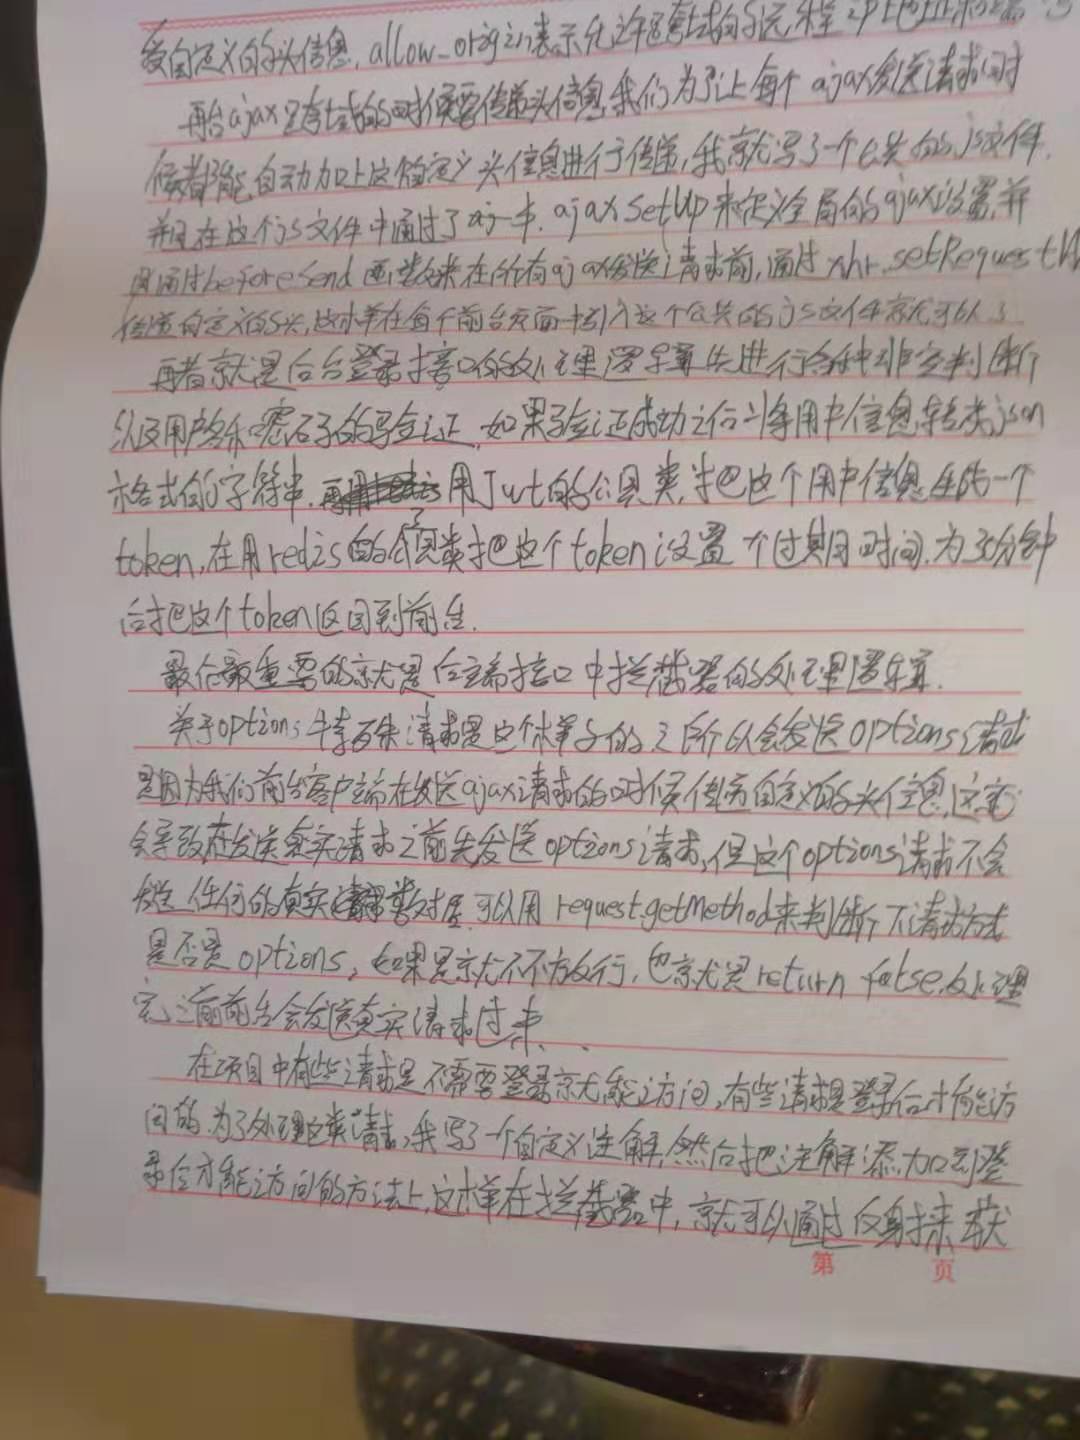 受自定义的头信息, allow_origin表示允许跨域的远程ip地址来源
再台ajax跨域的时候要传递头信息,我们为了让每个ajax发送请求时
候都能自动加上这个自定义头信息进行传递,我就写了一个公共的js文件.
并且在这个js文件中通过了ajax setup来定义全局的ajax设置,并
且通过beforeSend函数来在所有ajax发送请求前,通过xhr.setRequestH
传递自定义的头,这样在每个前台页面中引入这个公共的js文件就可以了
再者就是后台登录接口的处理逻辑先进行各种非空判断
以及用户名和密码的验证,如果验证成功之后将用户信息转类json
格式的字符串,用Jwt的公具类,把这个用户信息生成一个
token,在用redis的工具类把这个token设置一个过期时间,为30分钟
后把这个token返回到前台.
最后最重要的就是后端接口中拦截器的处理逻辑.
关于options请求是这个样子的之所以会发送options请求
是因为我们前台客户端在发送ajax请求的时候传递自定义的头信息,这就
会导致在发送真实请求之前先发送options请求,但这个options请求不会
发送任何的真实数据,可以用request.getMethod来判断下请求方式
是否是options,如果是就不放行,也就是return false,处理
完之前前台会发送真实请求过来.
在项目中有些请求是不需要登录就能访问,有些请求是登录后才能访
问的.为了处理这类请求,我写了一个自定义注解,然后把注解添加到登
录后才能访问的方法上,这样在拦截器中,就可以通过反射来获
第 页